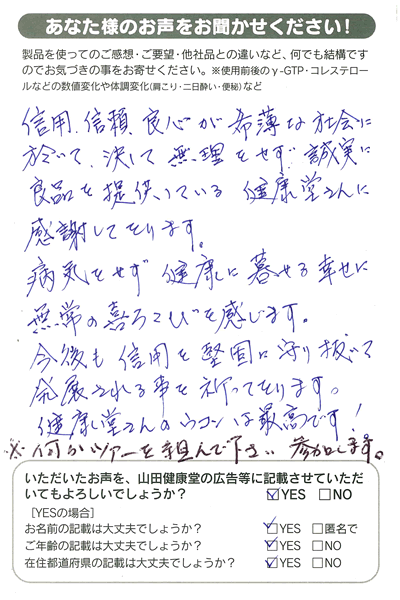 あなた様のお声をお聞かせください！
製品を使ってのご感想・ご要望・他社品との違いなど、何でも結構です
のでお気づきの事をお寄せください。※使用前後のγ-GTP・コレステロー
ルなどの数値変化や体調変化(肩こり・二日酔い・便秘)など
信用、信頼、良心が希薄な社会に
於いて、決して無理をせず誠実に
良品を提供している健康堂さんに
感謝しております。
病気をせず健康に暮せる幸せに
無常の喜ろこびを感じます。
今後も信用を堅固に守り抜いて
発展される事を祈っております。
健康堂さんのウコンは最高です！
※何かツアーを組んで下さい 参加します。
いただいたお声を、山田健康堂の広告等に記載させていただ
いてもよろしいでしょうか？ ☑YES □NO
［YESの場合］
お名前の記載は大丈夫でしょうか？ ☑YES □匿名で
ご年齢の記載は大丈夫でしょうか？ ☑YES □NO
在住都道府県の記載は大丈夫でしょうか？ ☑YES □NO